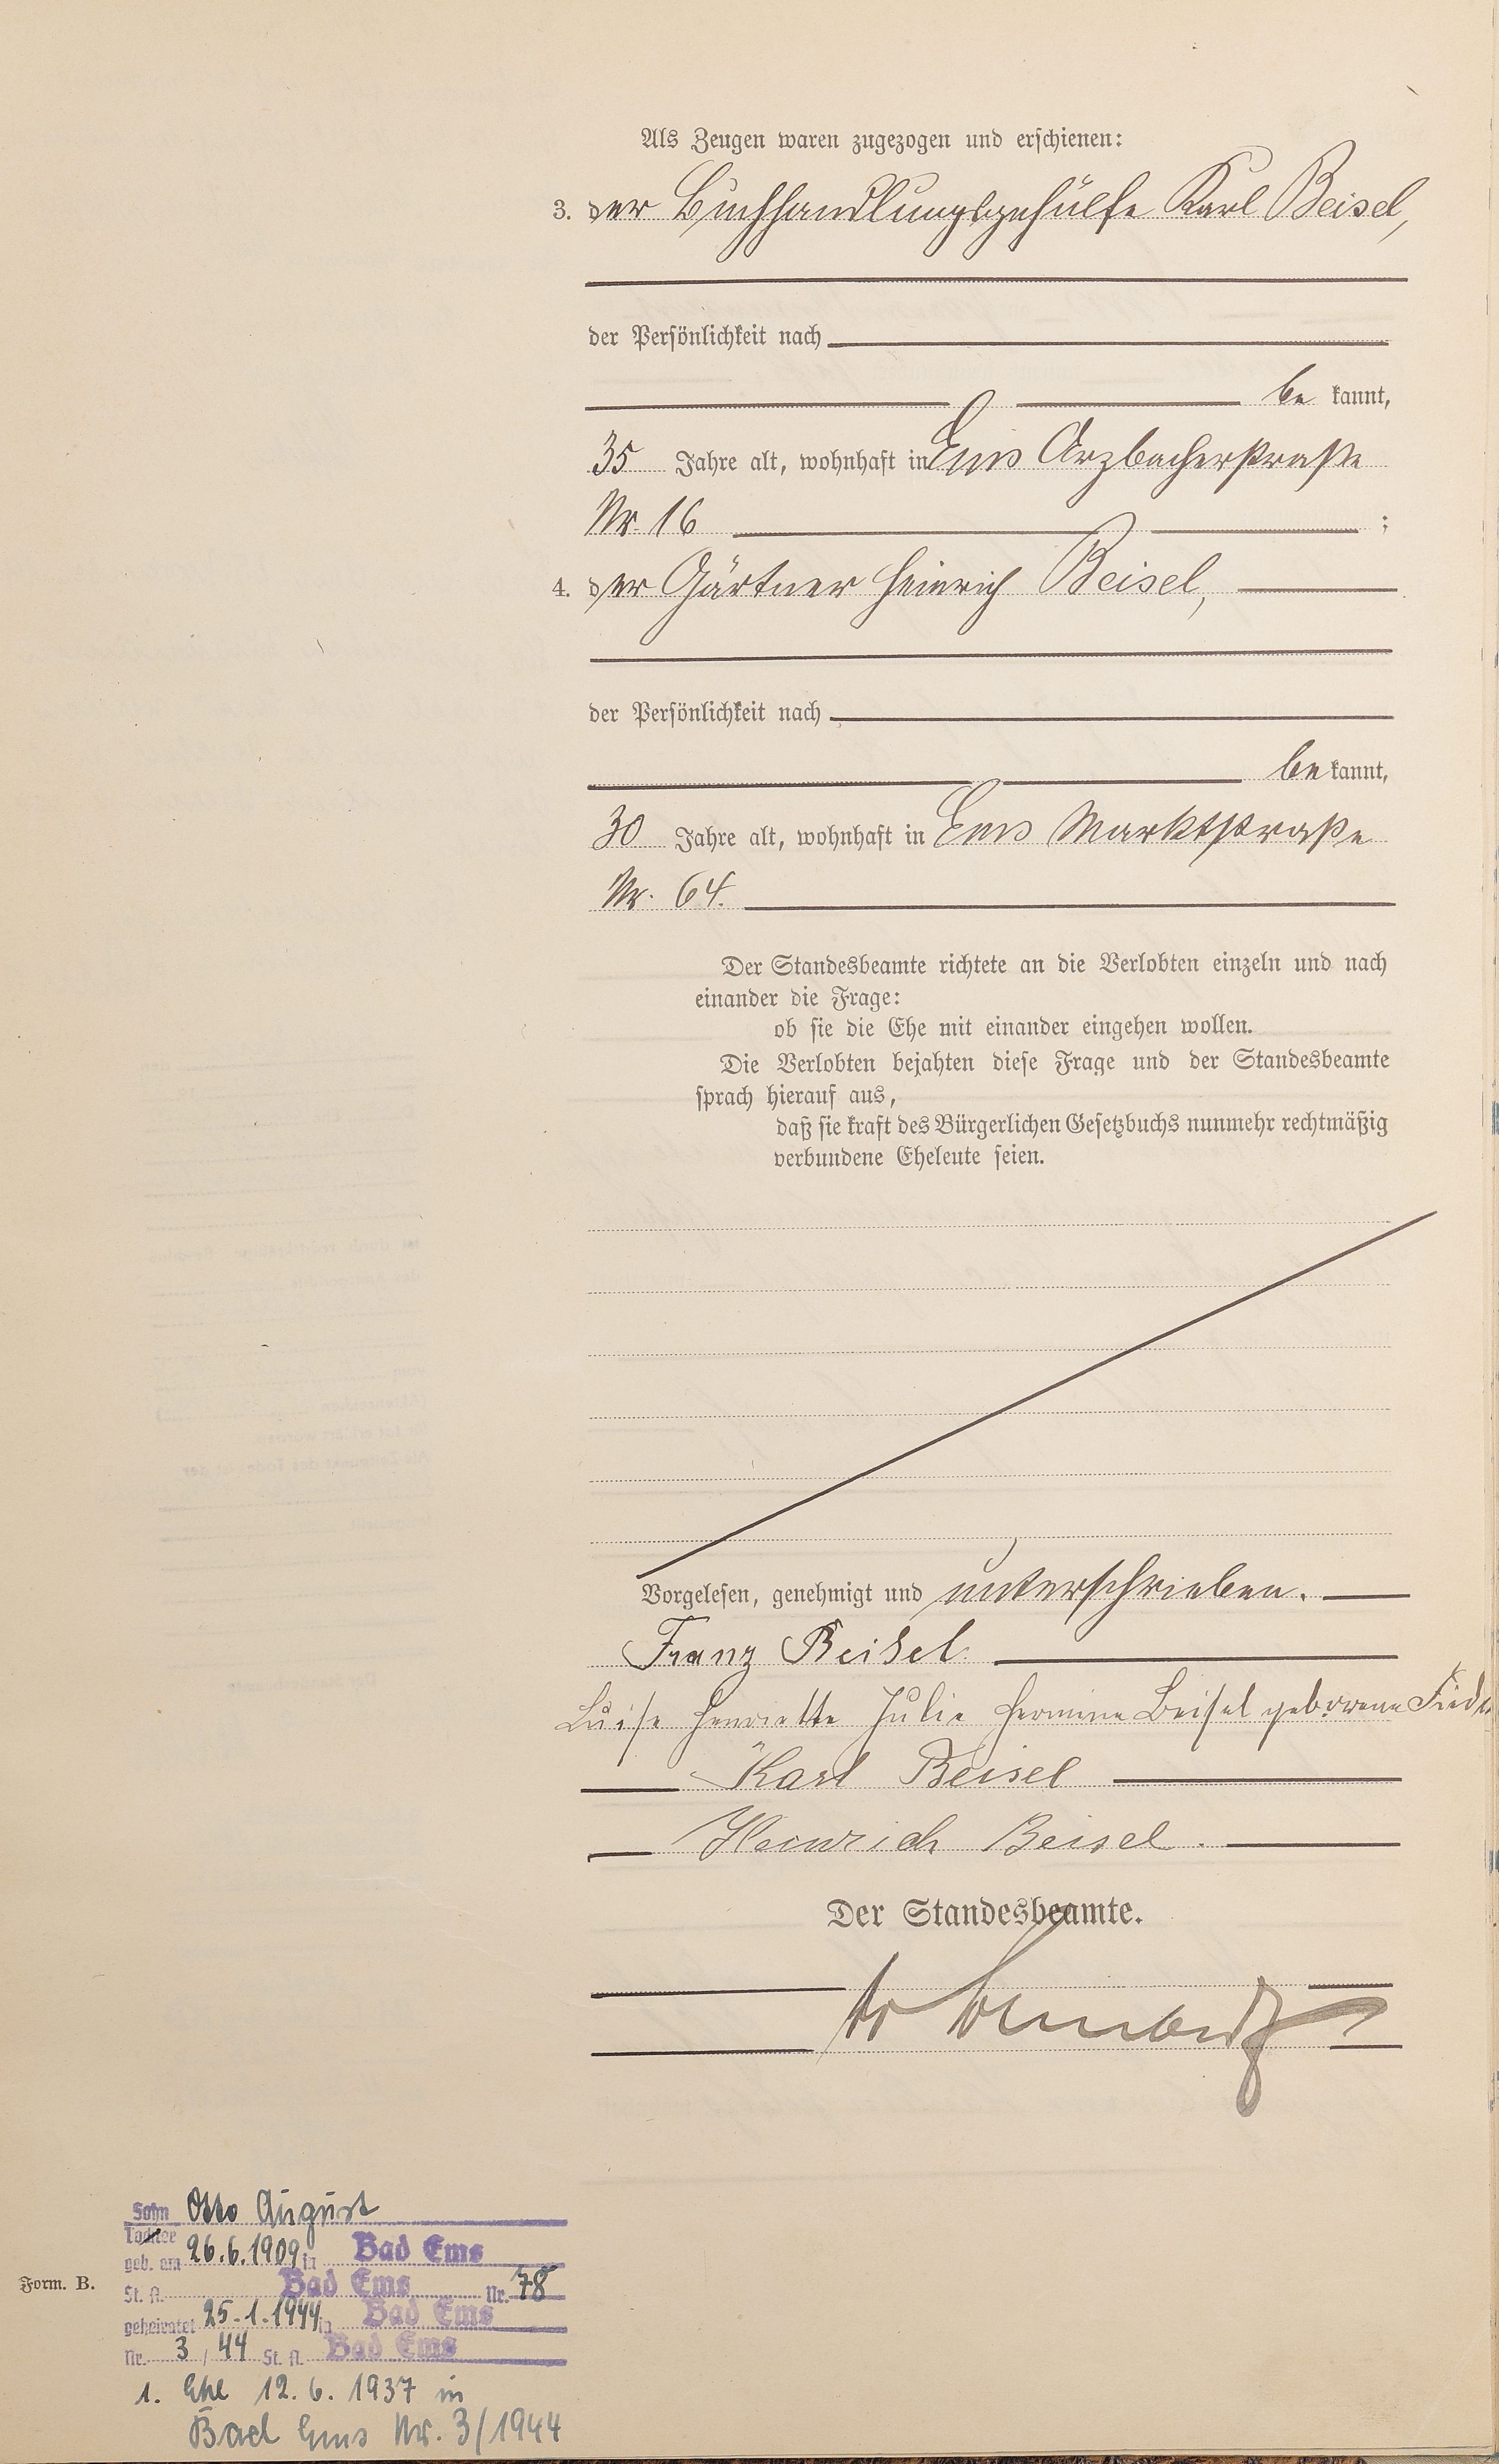 Als Zeugen waren zugezogen und erschienen:
3. der Buchhandlungsgehülfe Karl Beisel,
der Persönlichkeit nach
be kannt,
35 Jahre alt, wohnhaft in Ems Arzbacherstraße
Nr. 16 ;
4. der Gärtner Heinrich Beisel,
der Persönlichkeit nach
be kannt,
30 Jahre alt, wohnhaft in Ems Marktstraße
Nr. 64.
Der Standesbeamte richtete an die Verlobten einzeln und nach
einander die Frage:
ob sie die Ehe mit einander eingehen wollen.
Die Verlobten bejahten diese Frage und der Standesbeamte
sprach hierauf aus,
daß sie kraft des Bürgerlichen Gesetzbuchs nunmehr rechtmäßig
verbundene Eheleute seien.
Vorgelesen, genehmigt und unterschrieben.
Franz Beisel.
Luise Henriette Julie Hermine Beisel geborene
Karl Beisel
Heinrich Beisel.
Der Standesbeamte.
Sohn Otto August
Tochter
geb. am 26.6.1909 in Bad Ems
St. A. Bad Ems Nr. 78
geheiratet 25.1.1944 in Bad Ems
Nr. 3/44 St. A. Bad Ems
Form. B.
1. Ehe 12.6.1937 in
Bad Ems Nr. 3/1944